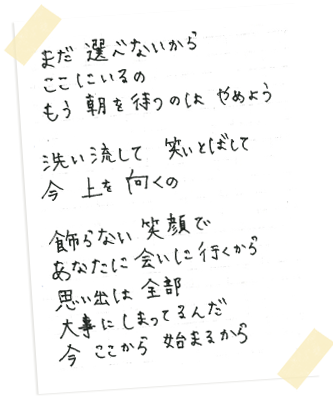 まだ 選べないから
ここにいるの
もう 朝を待つのは やめよう
洗い流して 笑いとばして
今 上を向くの
飾らない 笑顔で
あなたに会いに行くから
思い出は 全部
大事に しまってるんだ
今 ここから 始まるから